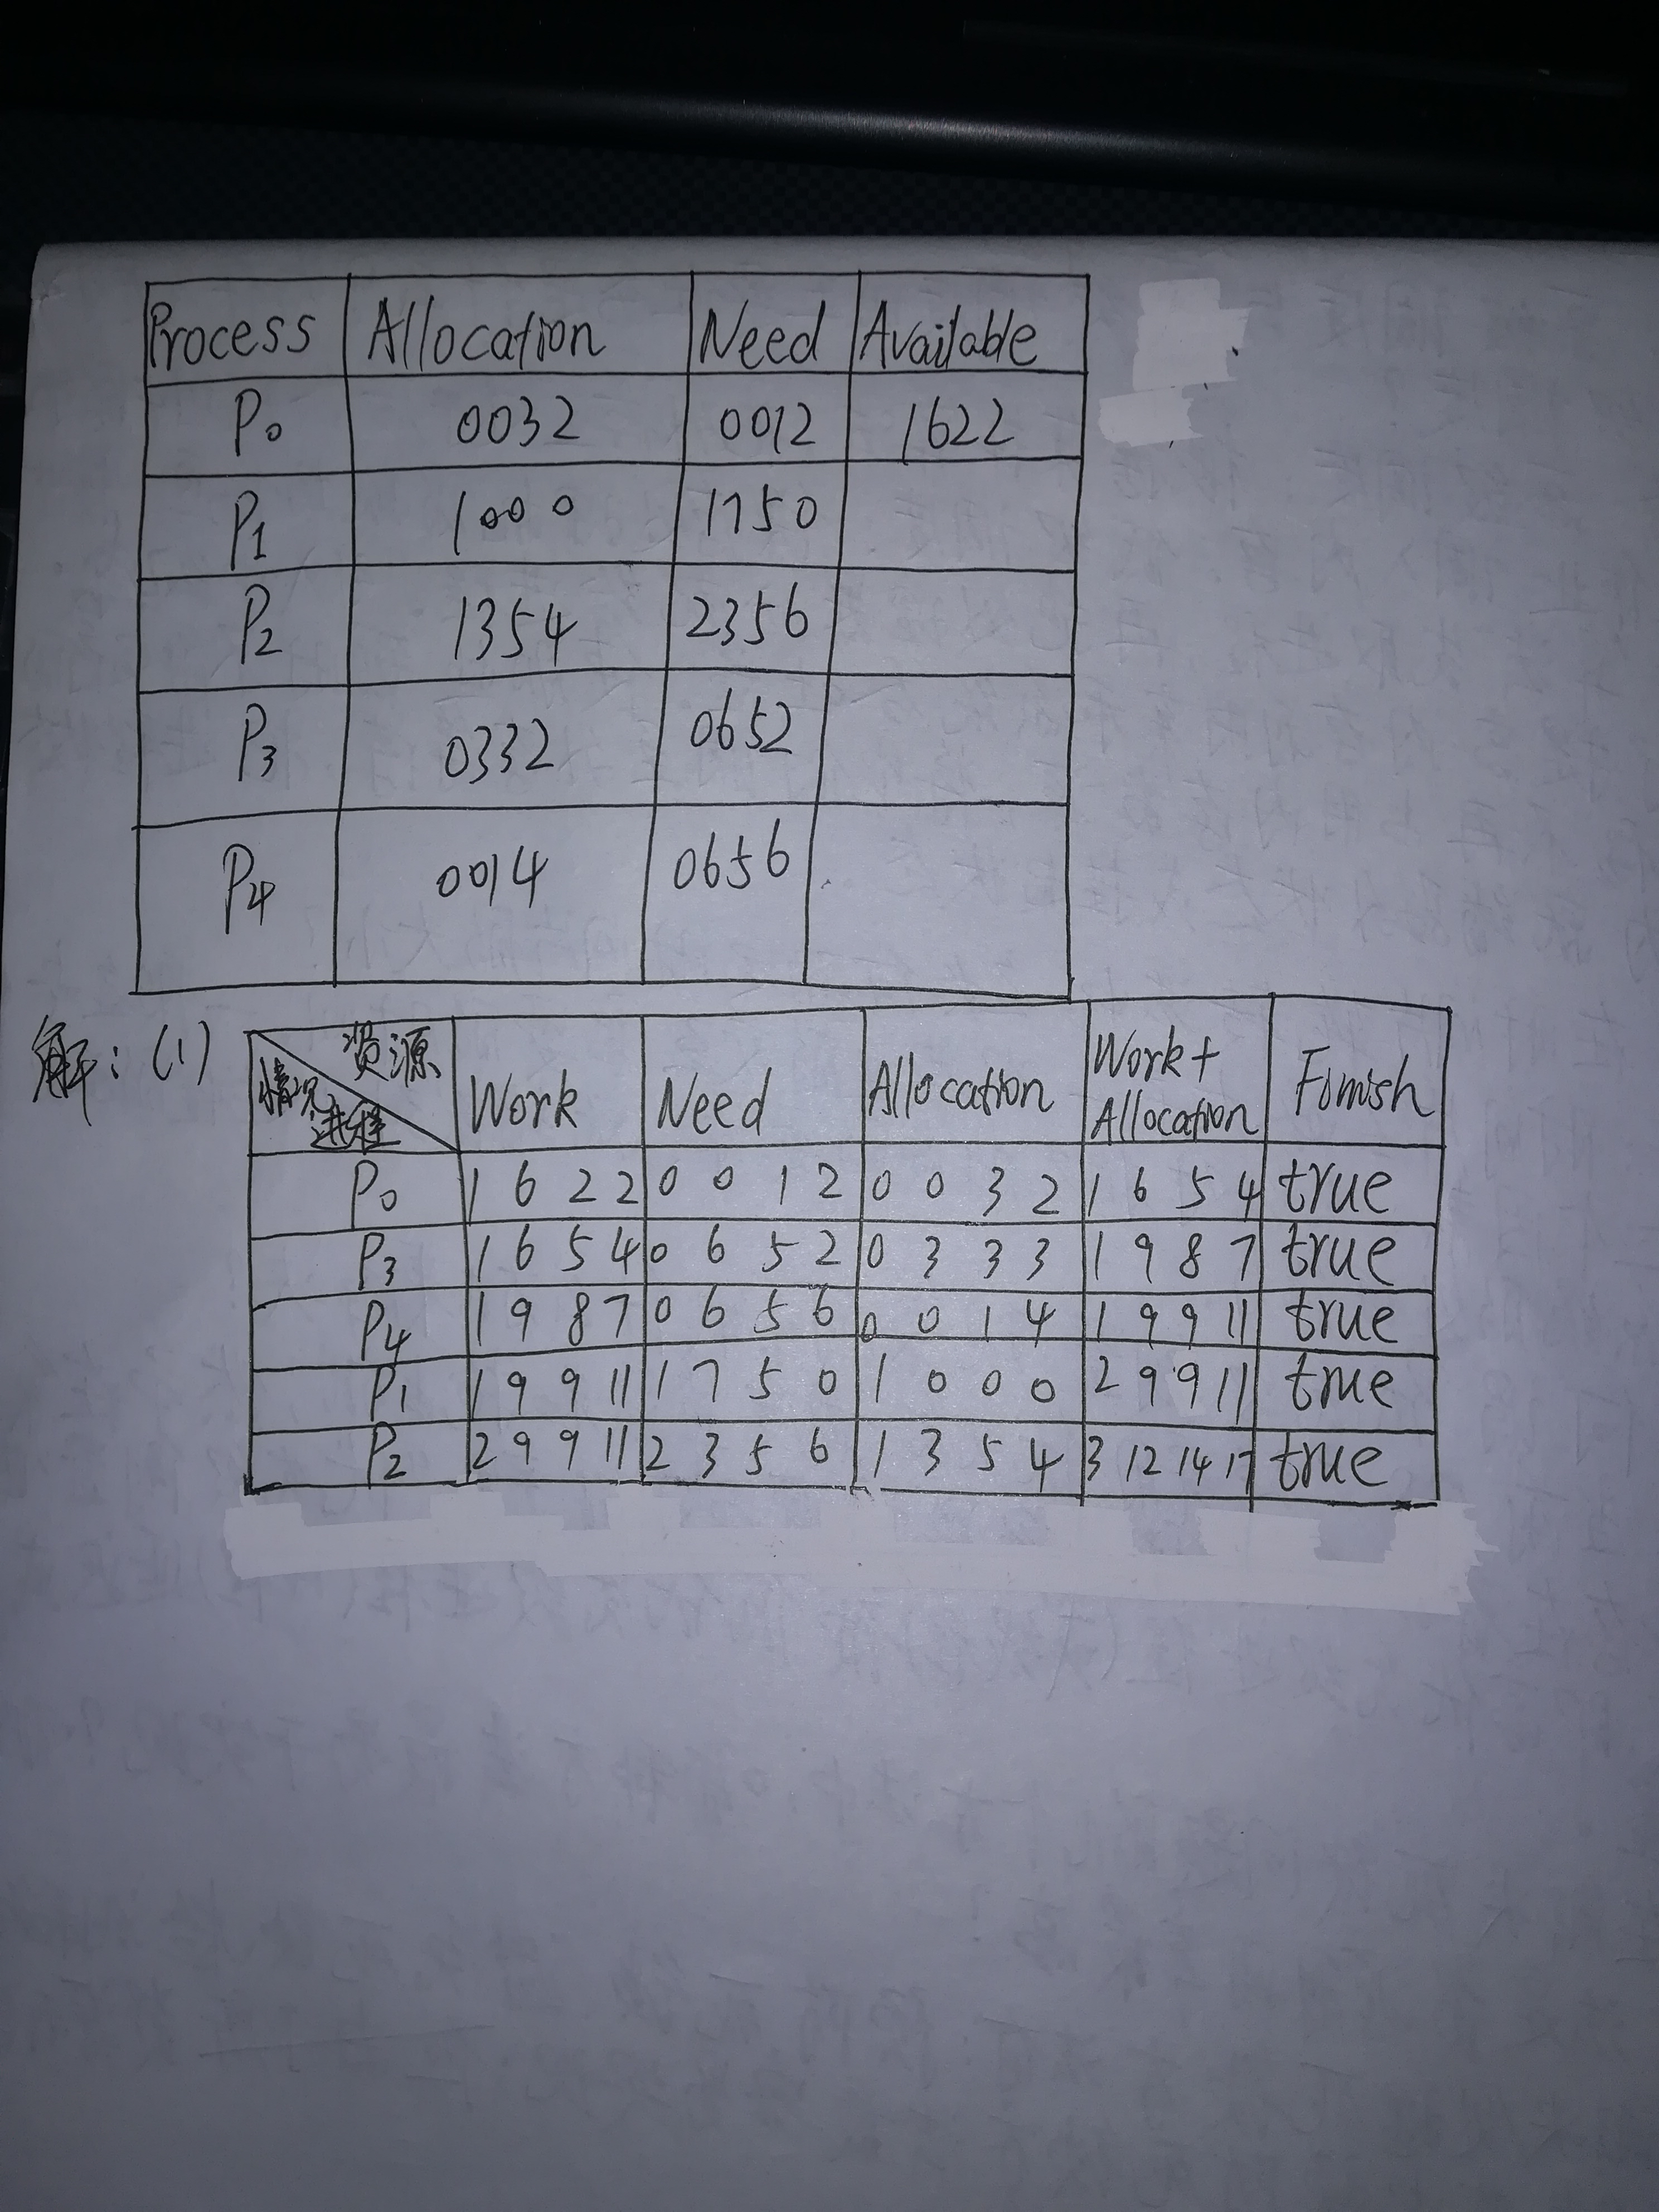 Process Allocation Need Available
P0 0032 0012 1622
P1 1000 1750
P2 1354 2356
P3 0332 0652
P4 0014 0656
解：(1)
资源 情况 进程 Work Need Allocation Work+Allocation Finish
P0 1 6 2 2 0 0 1 2 0 0 3 2 1 6 5 4 true
P3 1 6 5 4 0 6 5 2 0 3 3 3 1 9 8 7 true
P4 1 9 8 7 0 6 5 6 0 0 1 4 1 9 9 11 true
P1 1 9 9 11 1 7 5 0 1 0 0 0 2 9 9 11 true
P2 2 9 9 11 2 3 5 6 1 3 5 4 3 12 14 17 true